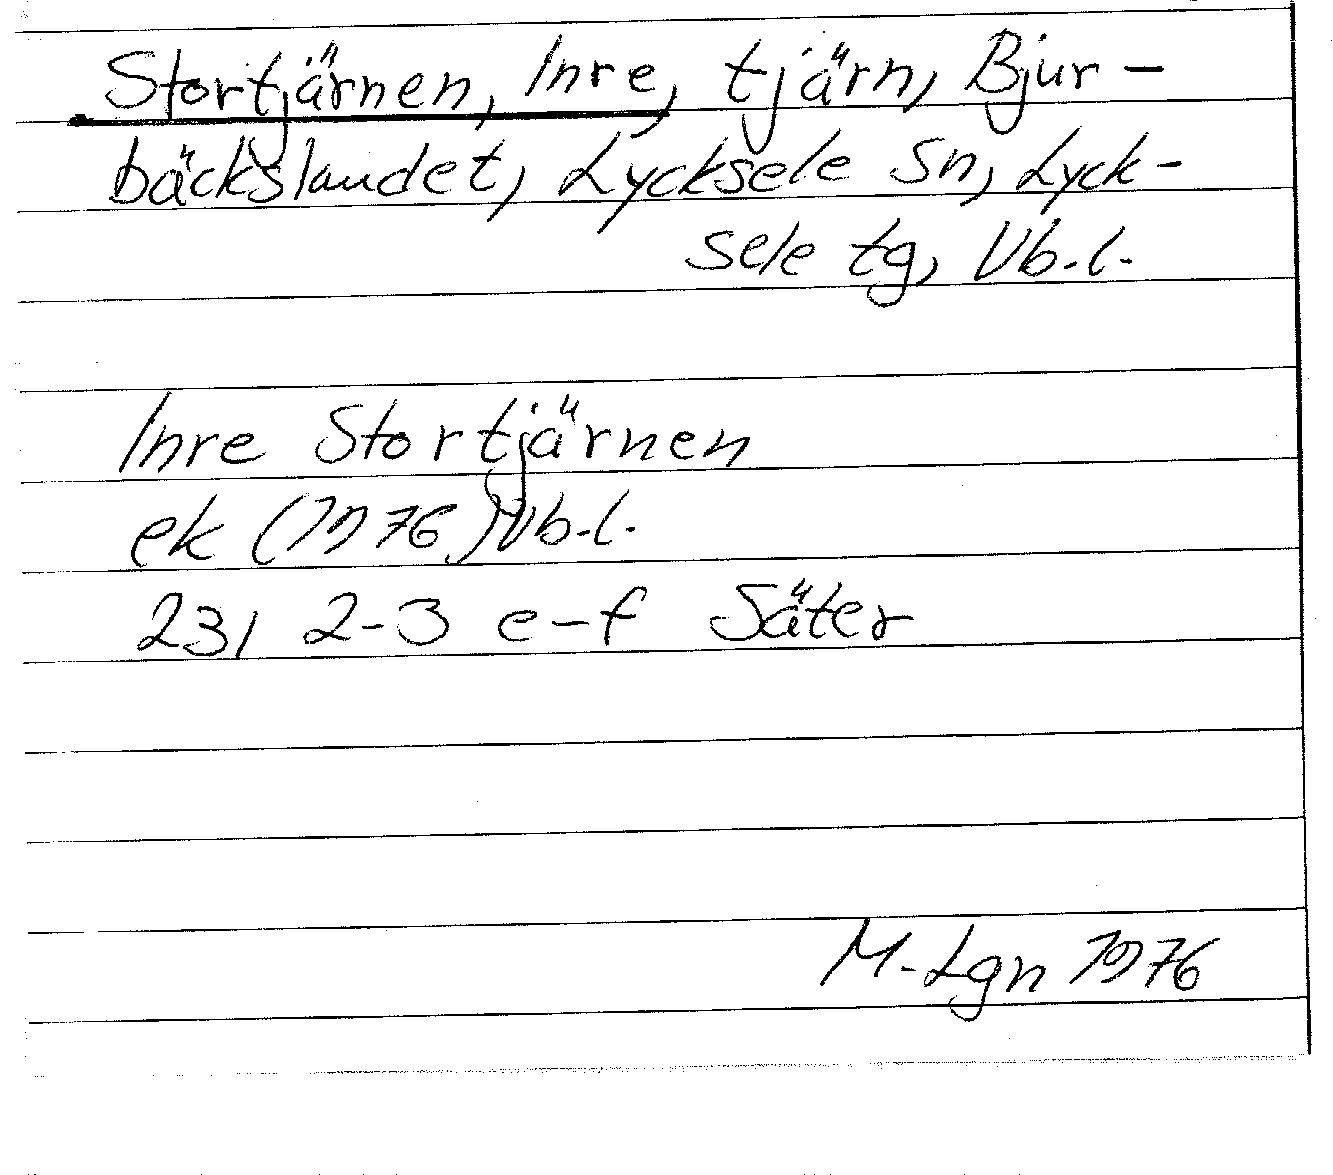 Stortjärnen, Inre, tjärn, Bjur-
bäckslandet, Lycksele sn, Lyck-
sele tg, Vb.l.
Inre Stortjärnen
ek (1976) Vb.l.
23I 2-3 e-f Säter
M-Lgn 1976